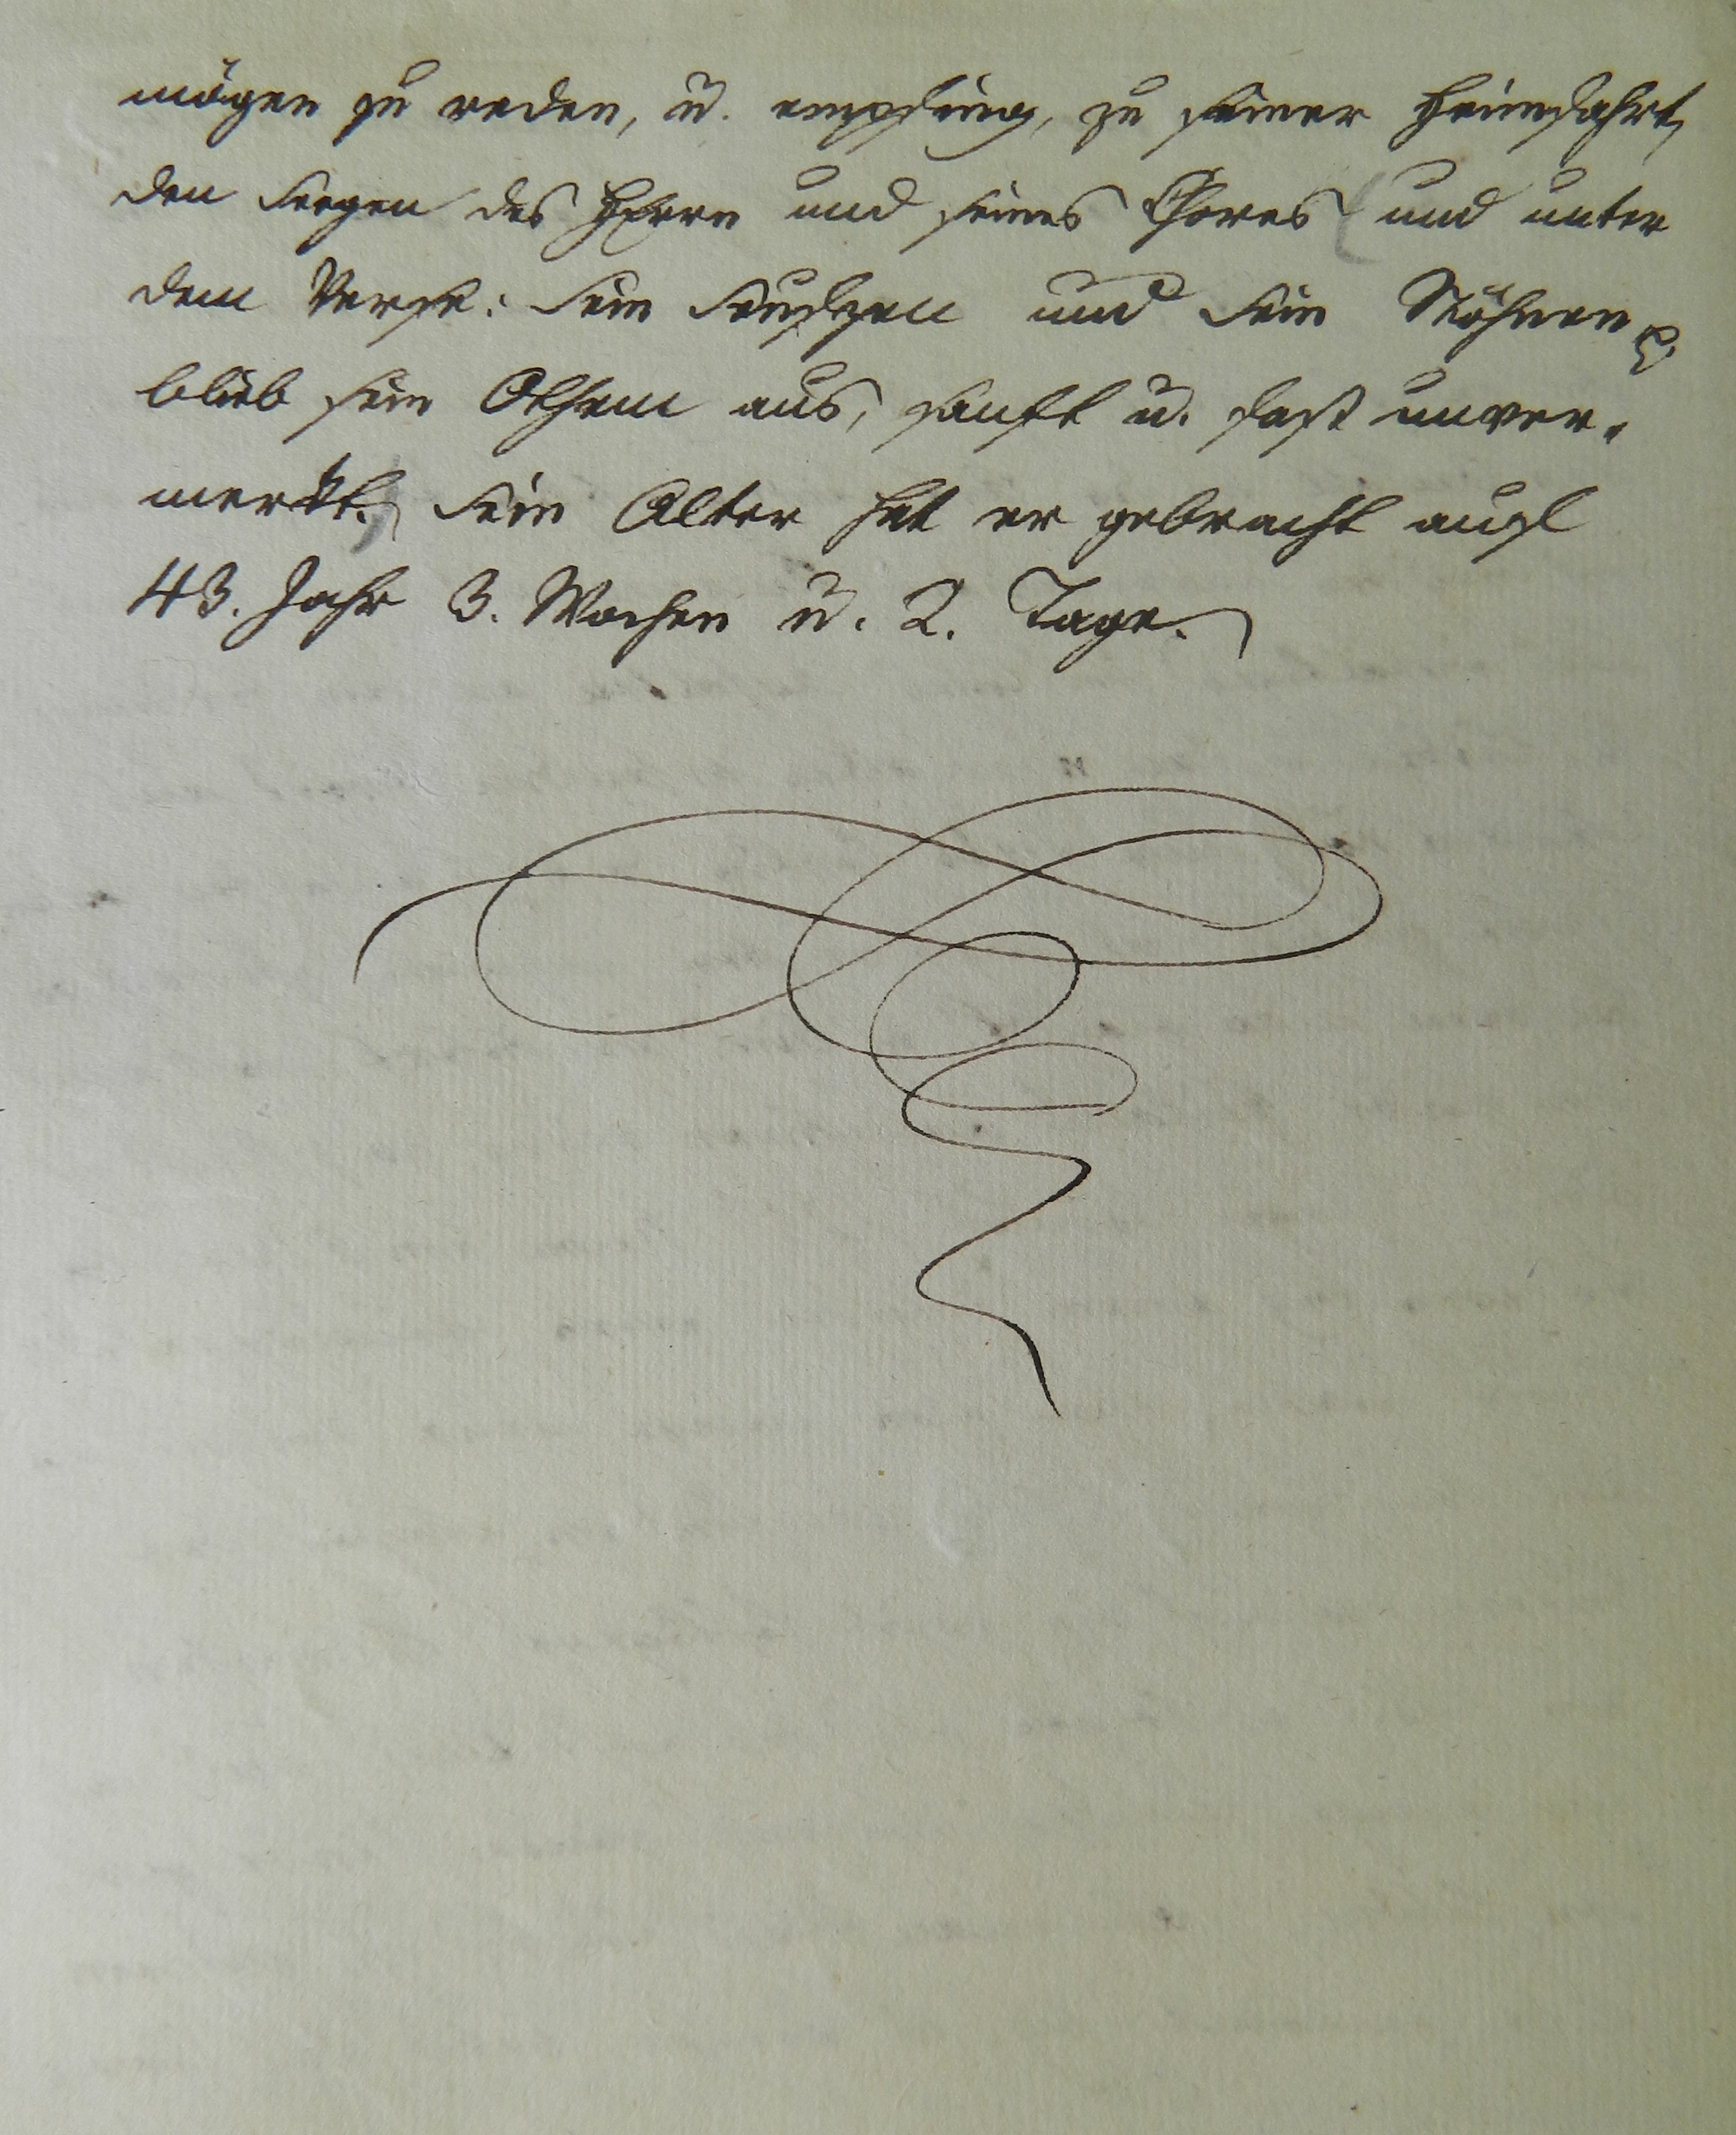 mögen zu reden, u. empfing, zu seiner Heimfahrt,
den Seegen des HErrn und seines Chores und unter
dem Verse: Sein Seufzen und sein Stöhnen ꝛc.
blieb sein Othem aus, sanft u. fast unver-
merkt. Sein Alter hat er gebracht auf
43. Jahr 3. Wochen u. 2. Tage.